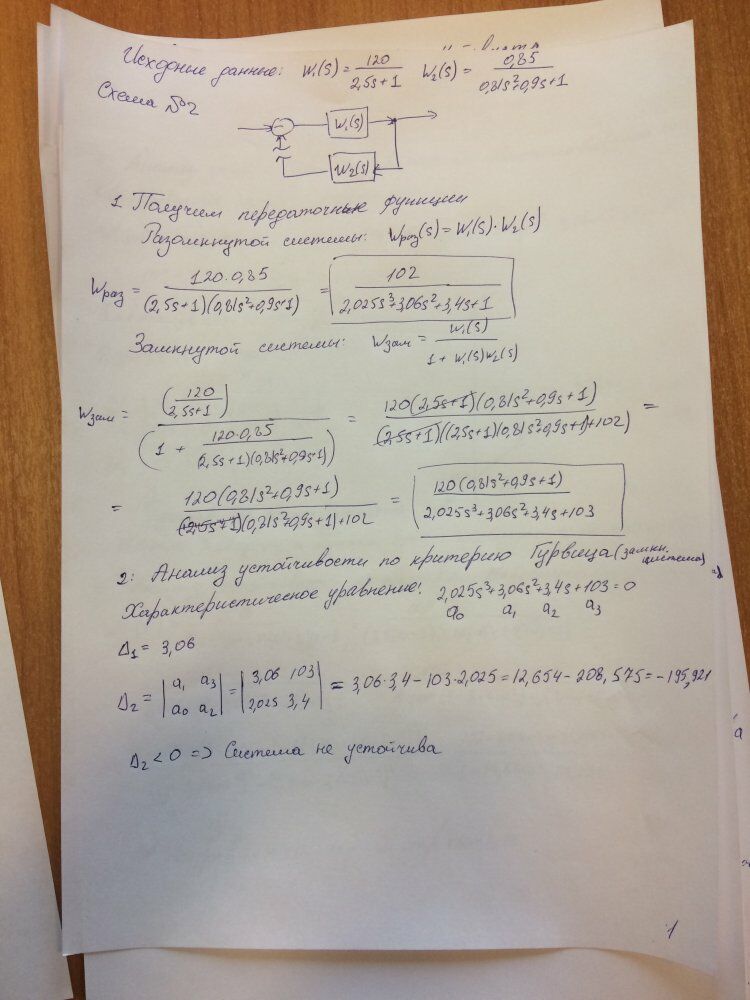 Исходные данные: W₁(s) = 120 / (2,5s+1) W₂(s) = 0,85 / (0,81s²+0,9s+1)
Схема №2
W₁(s)
W₂(s)
1. Получим передаточные функции
Разомкнутой системы: Wраз(s) = W₁(s)·W₂(s)
Wраз = 120·0,85 / (2,5s+1)(0,81s²+0,9s+1) = 102 / (2,025s³+3,06s²+3,4s+1)
Замкнутой системы: Wзам = W₁(s) / (1 + W₁(s)W₂(s))
Wзам = (120 / (2,5s+1)) / (1 + 120·0,85 / (2,5s+1)(0,81s²+0,9s+1)) = 120(2,5s+1)(0,81s²+0,9s+1) / (2,5s+1)((2,5s+1)(0,81s²+0,9s+1)+102) =
= 120(0,81s²+0,9s+1) / (2,5s+1)(0,81s²+0,9s+1)+102 = 120(0,81s²+0,9s+1) / (2,025s³+3,06s²+3,4s+103)
2: Анализ устойчивости по критерию Гурвица (замкн. система)
Характеристическое уравнение: 2,025s³+3,06s²+3,4s+103=0
a₀ a₁ a₂ a₃
Δ₁ = 3,06
Δ₂ = |a₁ a₃; a₀ a₂| = |3,06 103; 2,025 3,4| = 3,06·3,4 − 103·2,025 = 12,654 − 208,575 = −195,921
Δ₂ < 0 => Система не устойчива
1